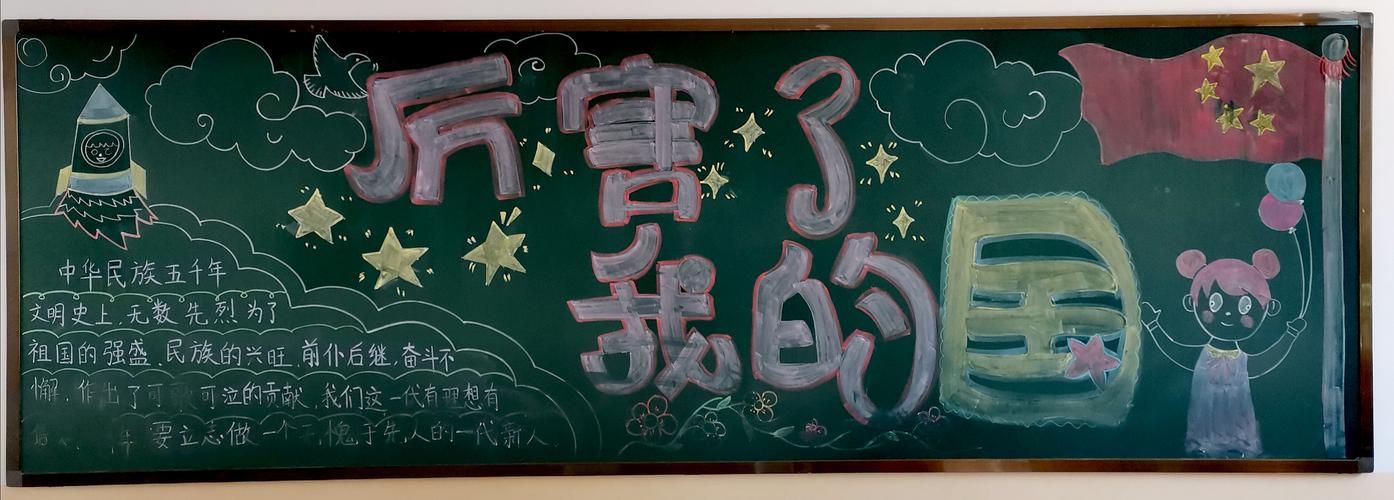 厉害了
我的国
中华民族五千年
文明史上,无数先烈为了
祖国的强盛、民族的兴旺,前仆后继,奋斗不
懈,作出了可歌可泣的贡献,我们这一代有理想有
要立志做一个无愧于先人的一代新人